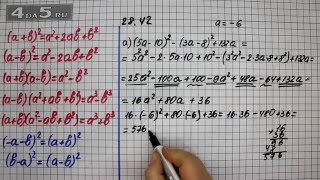 4DA5.RU
(a+b)²=a²+2ab+b²
(a-b)²=a²-2ab+b²
a²-b²=(a-b)(a+b)
(a-b)(a²+ab+b²)=a³-b³
(a+b)(a²-ab+b²)=a³+b³
(-a-b)²=(a+b)²
(b-a)²=(a-b)²
28.42 a=-6
a)(5a-10)²-(3a-8)²+132a=
=5²a²-2·5a·10+10²-(3²a²-2·3a·8+8²)+132a=
=25a²-100a+100-9a²+48a-64+132a=
=16a²+80a+36
16·(-6)²+80·(-6)+36=16·36-480+36=
=576
36
96
48
576